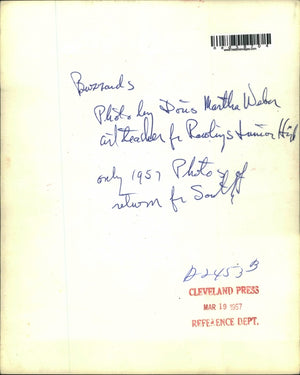 Buzzards
Photo by Doris Martha Weber
art teacher fr Rawlings Junior High
only 1957 Photo of
return fr South
CLEVELAND PRESS
MAR 19 1957
REFERENCE DEPT.